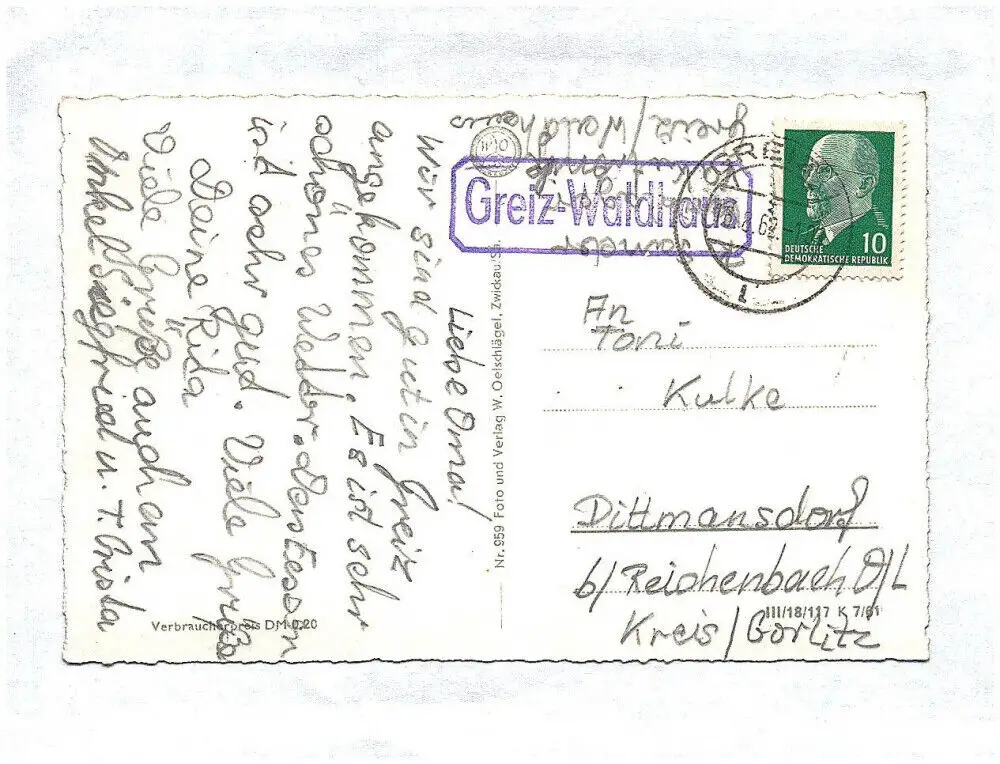 Liebe Oma!
Wir sind gut in Greiz
angekommen. Es ist sehr
schönes Wetter. Das Essen
ist sehr gut. Viele Grüße
Deine Rita
Viele Grüße auch am
Onkel Siegfried u. T. Crista
Greiz/Waldhaus
Greiz-Waldhaus
GRE
62
DEUTSCHE
DEMOKRATISCHE REPUBLIK
10
An
Toni
Kulke
Dittmansdorf
b/Reichenbach O/L
Kreis/Görlitz
Nr. 959 Foto und Verlag W. Oelschlägel, Zwickau/Sa.
Verbraucherpreis DM 0,20
III/18/117 K 7/61